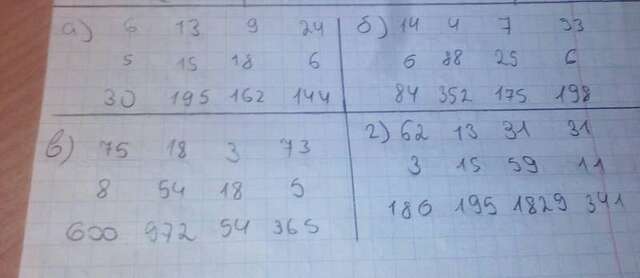 а) 6 13 9 24
5 15 18 6
30 195 162 144
б) 14 4 7 33
6 88 25 6
84 352 175 198
в) 75 18 3 73
8 54 18 5
600 972 54 365
г) 62 13 31 31
3 15 59 11
186 195 1829 341